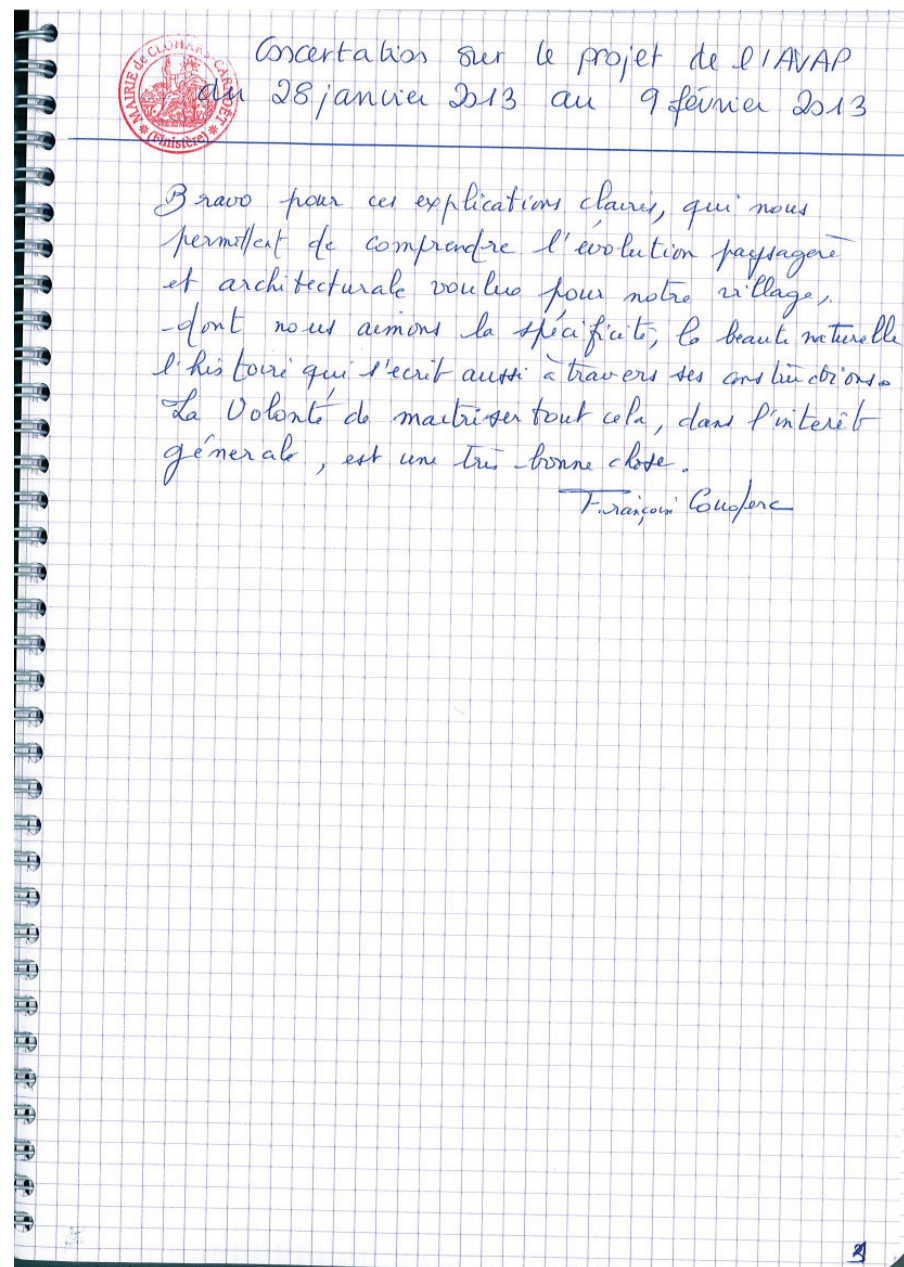 MAIRIE de CLOHARS CARNOËT
(Finistère)
Concertation sur le projet de l'AVAP
du 28 janvier 2013 au 9 février 2013
Bravo pour ces explications claires, qui nous
permettent de comprendre l'évolution paysagère
et architecturale voulue pour notre village,
dont nous aimons la spécificité, la beauté naturelle
l'histoire qui s'écrit aussi à travers ses constructions.
La Volonté de maitriser tout cela, dans l'interêt
génerale, est une très bonne chose.